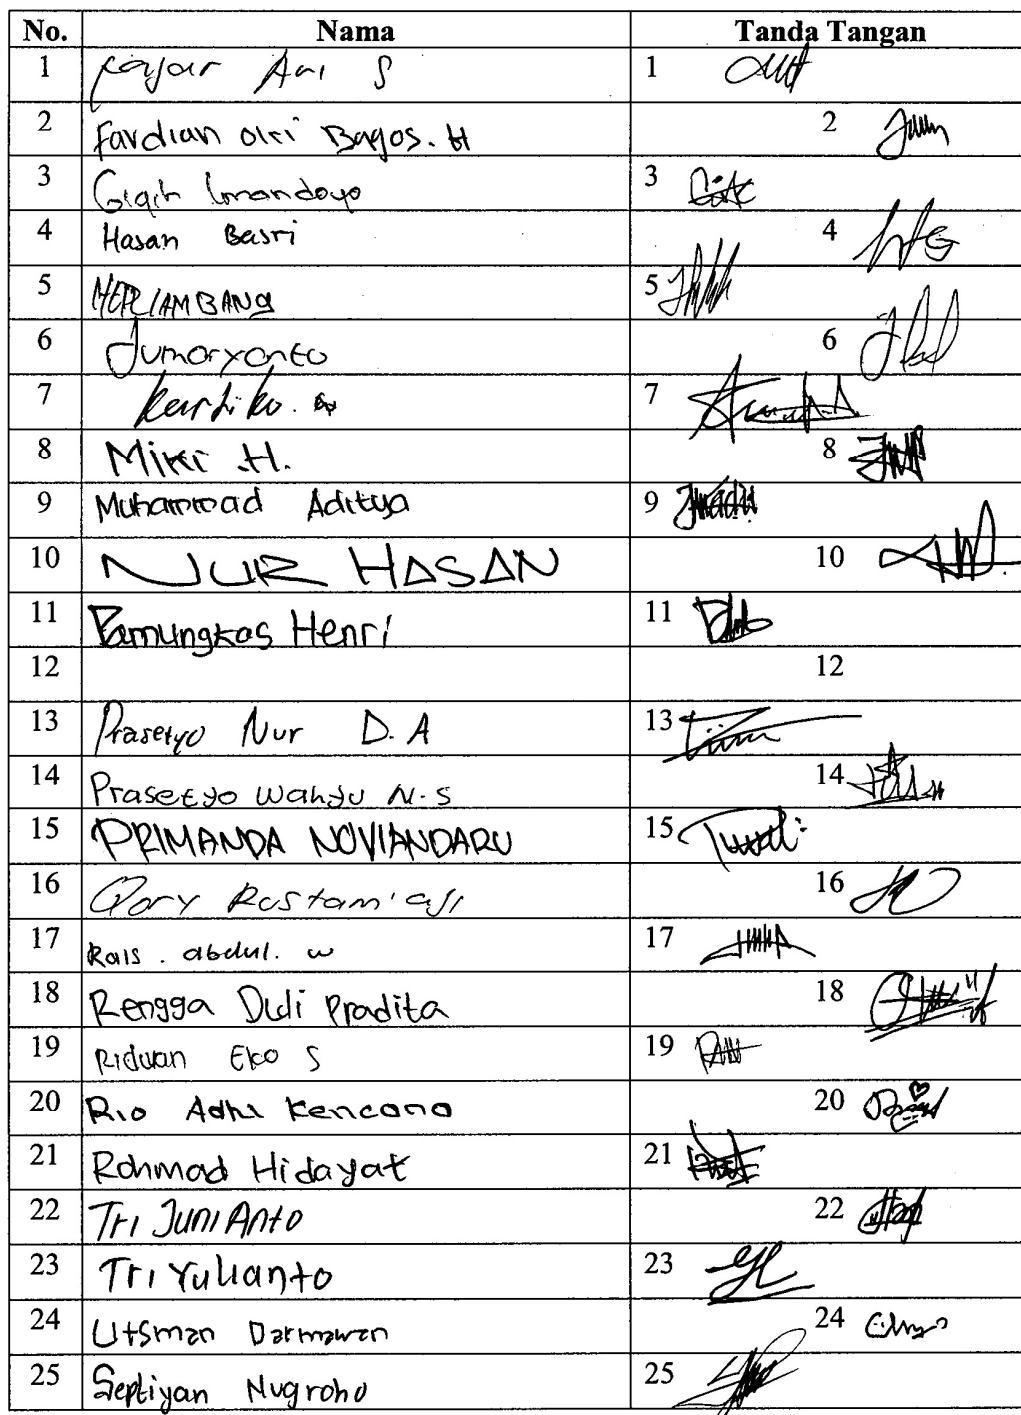 No. Nama Tanda Tangan
1 Fajar Ari S 1
2 Fardian Oki Bagos. H 2
3 Gigih Imandoyo 3
4 Hasan Basri 4
5 HERLAMBANG 5
6 Jumaryanto 6
7 Kartiko. 7
8 Miki .H. 8
9 Muhammad Aditya 9
10 NUR HASAN 10
11 Pamungkas Henri 11
12 12
13 Prasetyo Nur D.A 13
14 Prasetyo Wahyu N.S 14
15 PRIMANDA NOVIANDARU 15
16 Qory Rustam aji 16
17 Rais . abdul. w 17
18 Rengga Didi Pradita 18
19 Riduan Eko S 19
20 Rio Adhi Kencono 20
21 Rohmad Hidayat 21
22 Tri JuniAnto 22
23 Tri Yulianto 23
24 Utsman Darmawan 24
25 Septiyan Nugroho 25